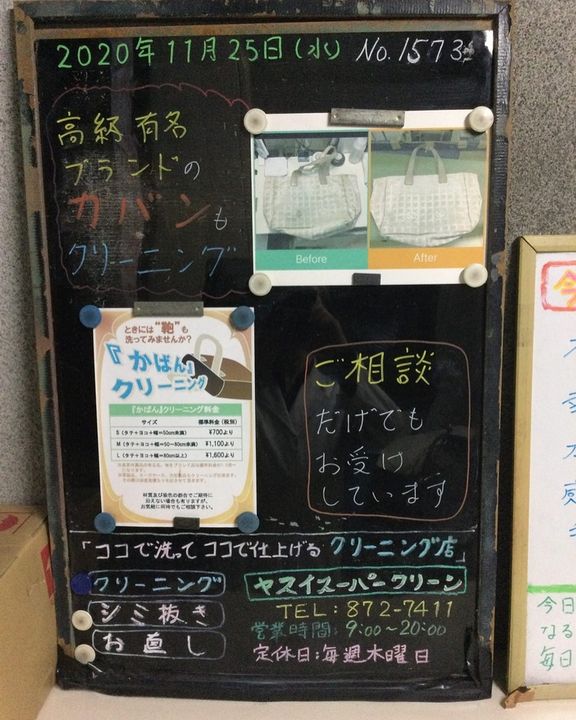 2020年11月25日(水) No.1573
高級有名
ブランドの
カバンも
クリーニング
Before
After
ときには"鞄"も
洗ってみませんか？
『かばん』
クリーニング
『かばん』クリーニング料金
サイズ 標準料金(税別)
S (タテ+ヨコ+幅=50cm未満) ¥700より
M (タテ+ヨコ+幅=50～80cm未満) ¥1,100より
L (タテ+ヨコ+幅=80cm以上) ¥1,600より
材質及び染色の都合でご期待に
沿えない場合も有りますが、
お気軽に何時でもご相談下さい。
ご相談
だけでも
お受け
しています
「ココで洗って ココで仕上げる クリーニング店」
クリーニング
シミ抜き
お直し
ヤスイスーパークリーン
TEL:872-7411
営業時間:9:00~20:00
定休日:毎週木曜日
今
今日
なる
毎日